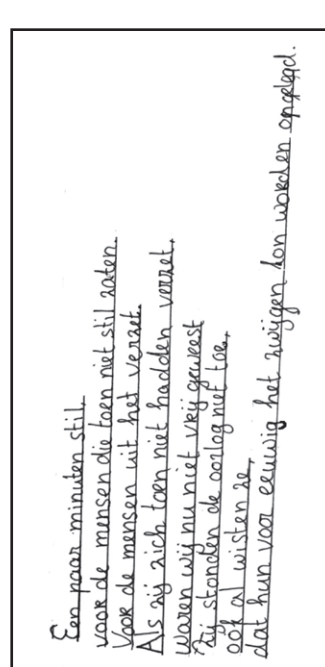 Een paar minuten stil
voor de mensen die toen niet stil zaten.
Voor de mensen uit het verzet.
Als zij zich toen niet hadden verzet,
waren wij nu niet vrij geweest
Zij stonden de oorlog niet toe,
ook al wisten ze,
dat hun voor eeuwig het zwijgen kon worden opgelegd.